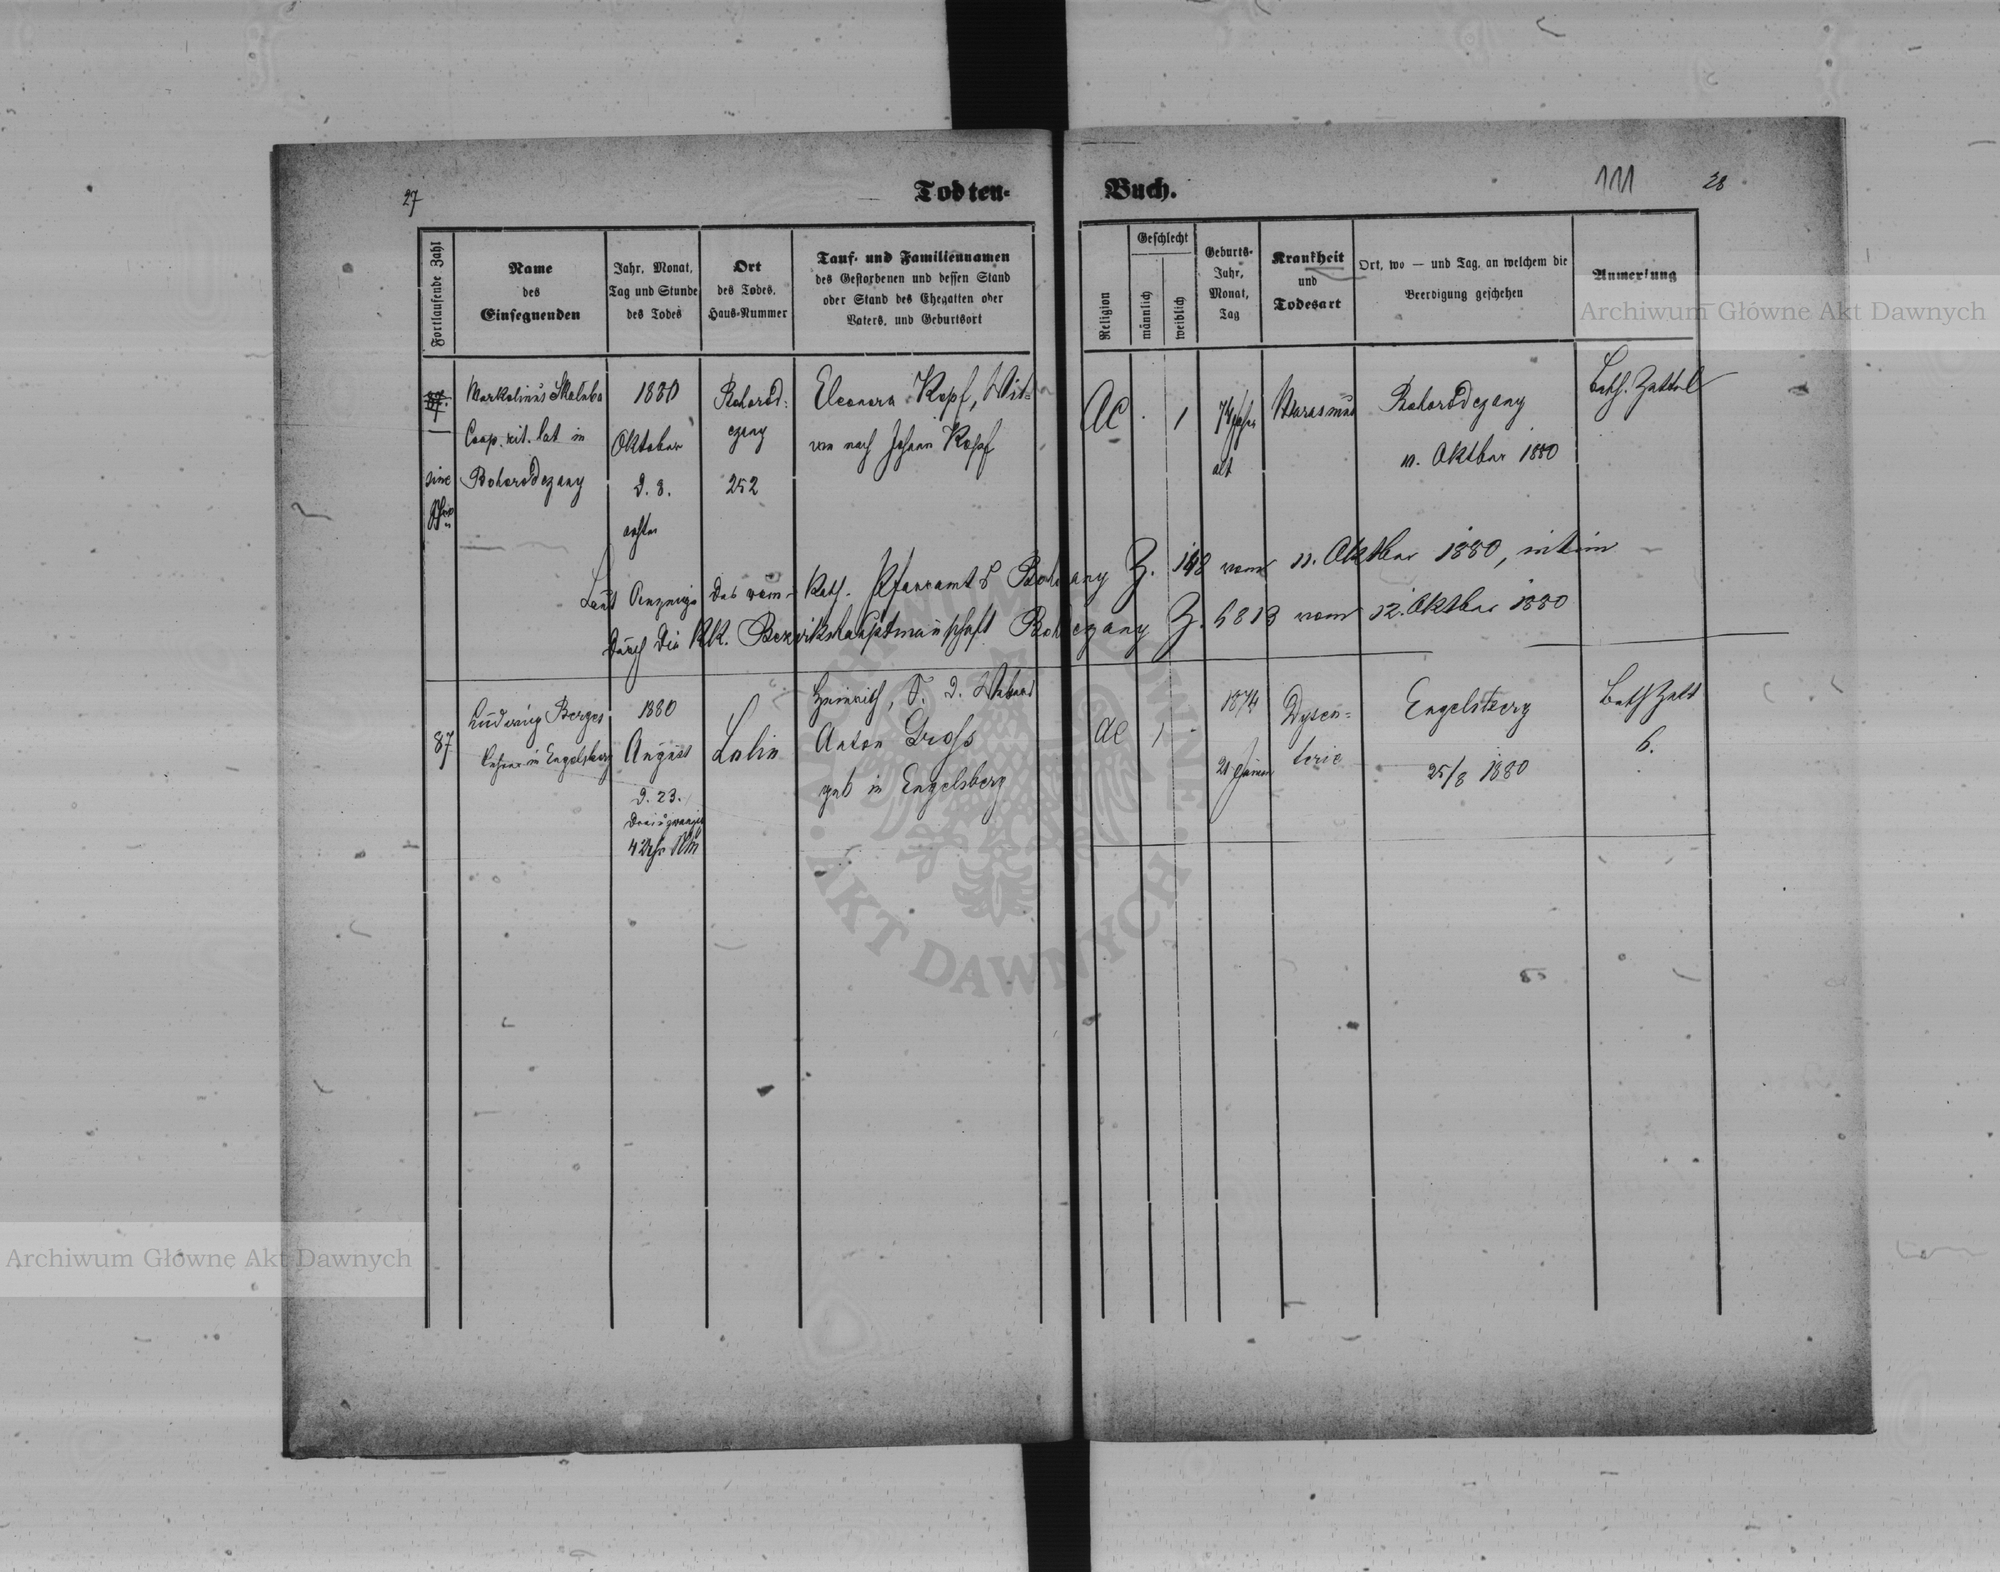 27
Todten-
Buch.
111
28
Fortlaufende Zahl
Name
des
Einsegnenden
Jahr, Monat,
Tag und Stunde
des Todes
Ort
des Todes,
Haus-Nummer
Tauf- und Familiennamen
des Gestorbenen und dessen Stand
oder Stand des Ehegatten oder
Vaters, und Geburtsort
Religion
Geschlecht
männlich
weiblich
Geburts-
Jahr,
Monat,
Tag
Krankheit
und
Todesart
Ort, wo — und Tag, an welchem die
Beerdigung geschehen
Anmerkung
87.
sine
Coop. rit. lat in
Bohorodczany
1880
Oktober
d. 8.
achten
Bohorod:
czany
252
Eleonora Kopf, Wit-
we nach Johann Kopf
AC
1
74 Jahre
alt
Marasmus
Bohorodczany
11. Oktber 1880
Beth. Zettel
Laut Anzeige des röm- Kath. Pfarramts Z. 148 vom 11. Oktber 1880
durch die KK. Bezirkshauptmanschaft Z. 6813 vom 12. Oktber 1880
87
Ludwig Berges
Lehrer in Engelsberg
1880
August
d. 23.
4 Uhr Nm
Lolin
Heinrich, S. d.
Anton Gross
geb in Engelsberg
AC
1
1874
21 Jänner
Dysen=
terie
Engelsberg
25/8 1880
Beth Zett
6.
Archiwum Główne Akt Dawnych
Archiwum Główne Akt Dawnych
ARCHIWUM GŁÓWNE
AKT DAWNYCH